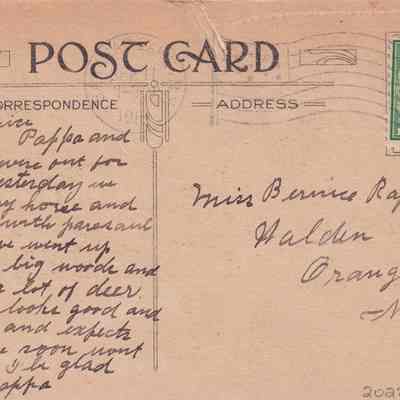 POST CARD
CORRESPONDENCE
ADDRESS
Pappa and
were out for
yesterday we
horse and
with parasaul
we went up
big woods and
a lot of deer
looks good and
and expects
soon wont
I'le be glad
Pappa
Miss Bernice Ra
Walden
Orang
N